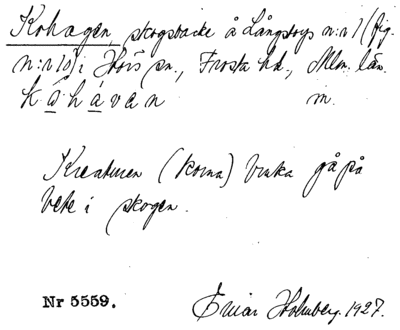 Kohagen, skogsbacke å Långtofs n:r 1 (fig.
n:r 10) i Hörs sn., Frosta hd., Mlm. län.
kọ́hávan m.
Kreaturen (korna) bruka gå på
bete i skogen.
Nr 5559. Einar Holmberg. 1927.